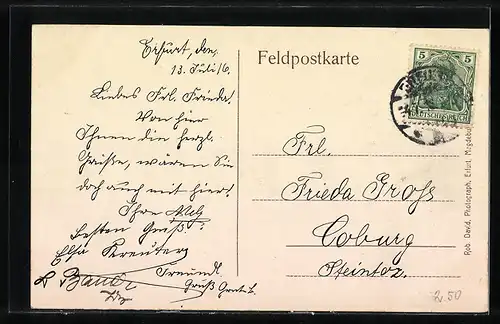 Erfurt, den
13. Juli 16
Liebes Frl. Frieda!
Von hier
Ihnen die herzl.
Grüße, wären Sie
doch auch mit hier!
Ihre
besten Gruß
Elsa Kreuter
Bauer
Freundl.
Gruß
Feldpostkarte
5 5
DEUTSCHES REICH
Frl.
Frieda Groß
Coburg
Steintor.
Rob. David, Photograph, Erfurt, Magdebu
2.50